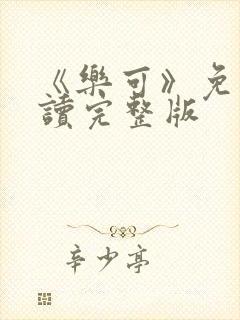 《樂可》免
讀完整版
辛少亭